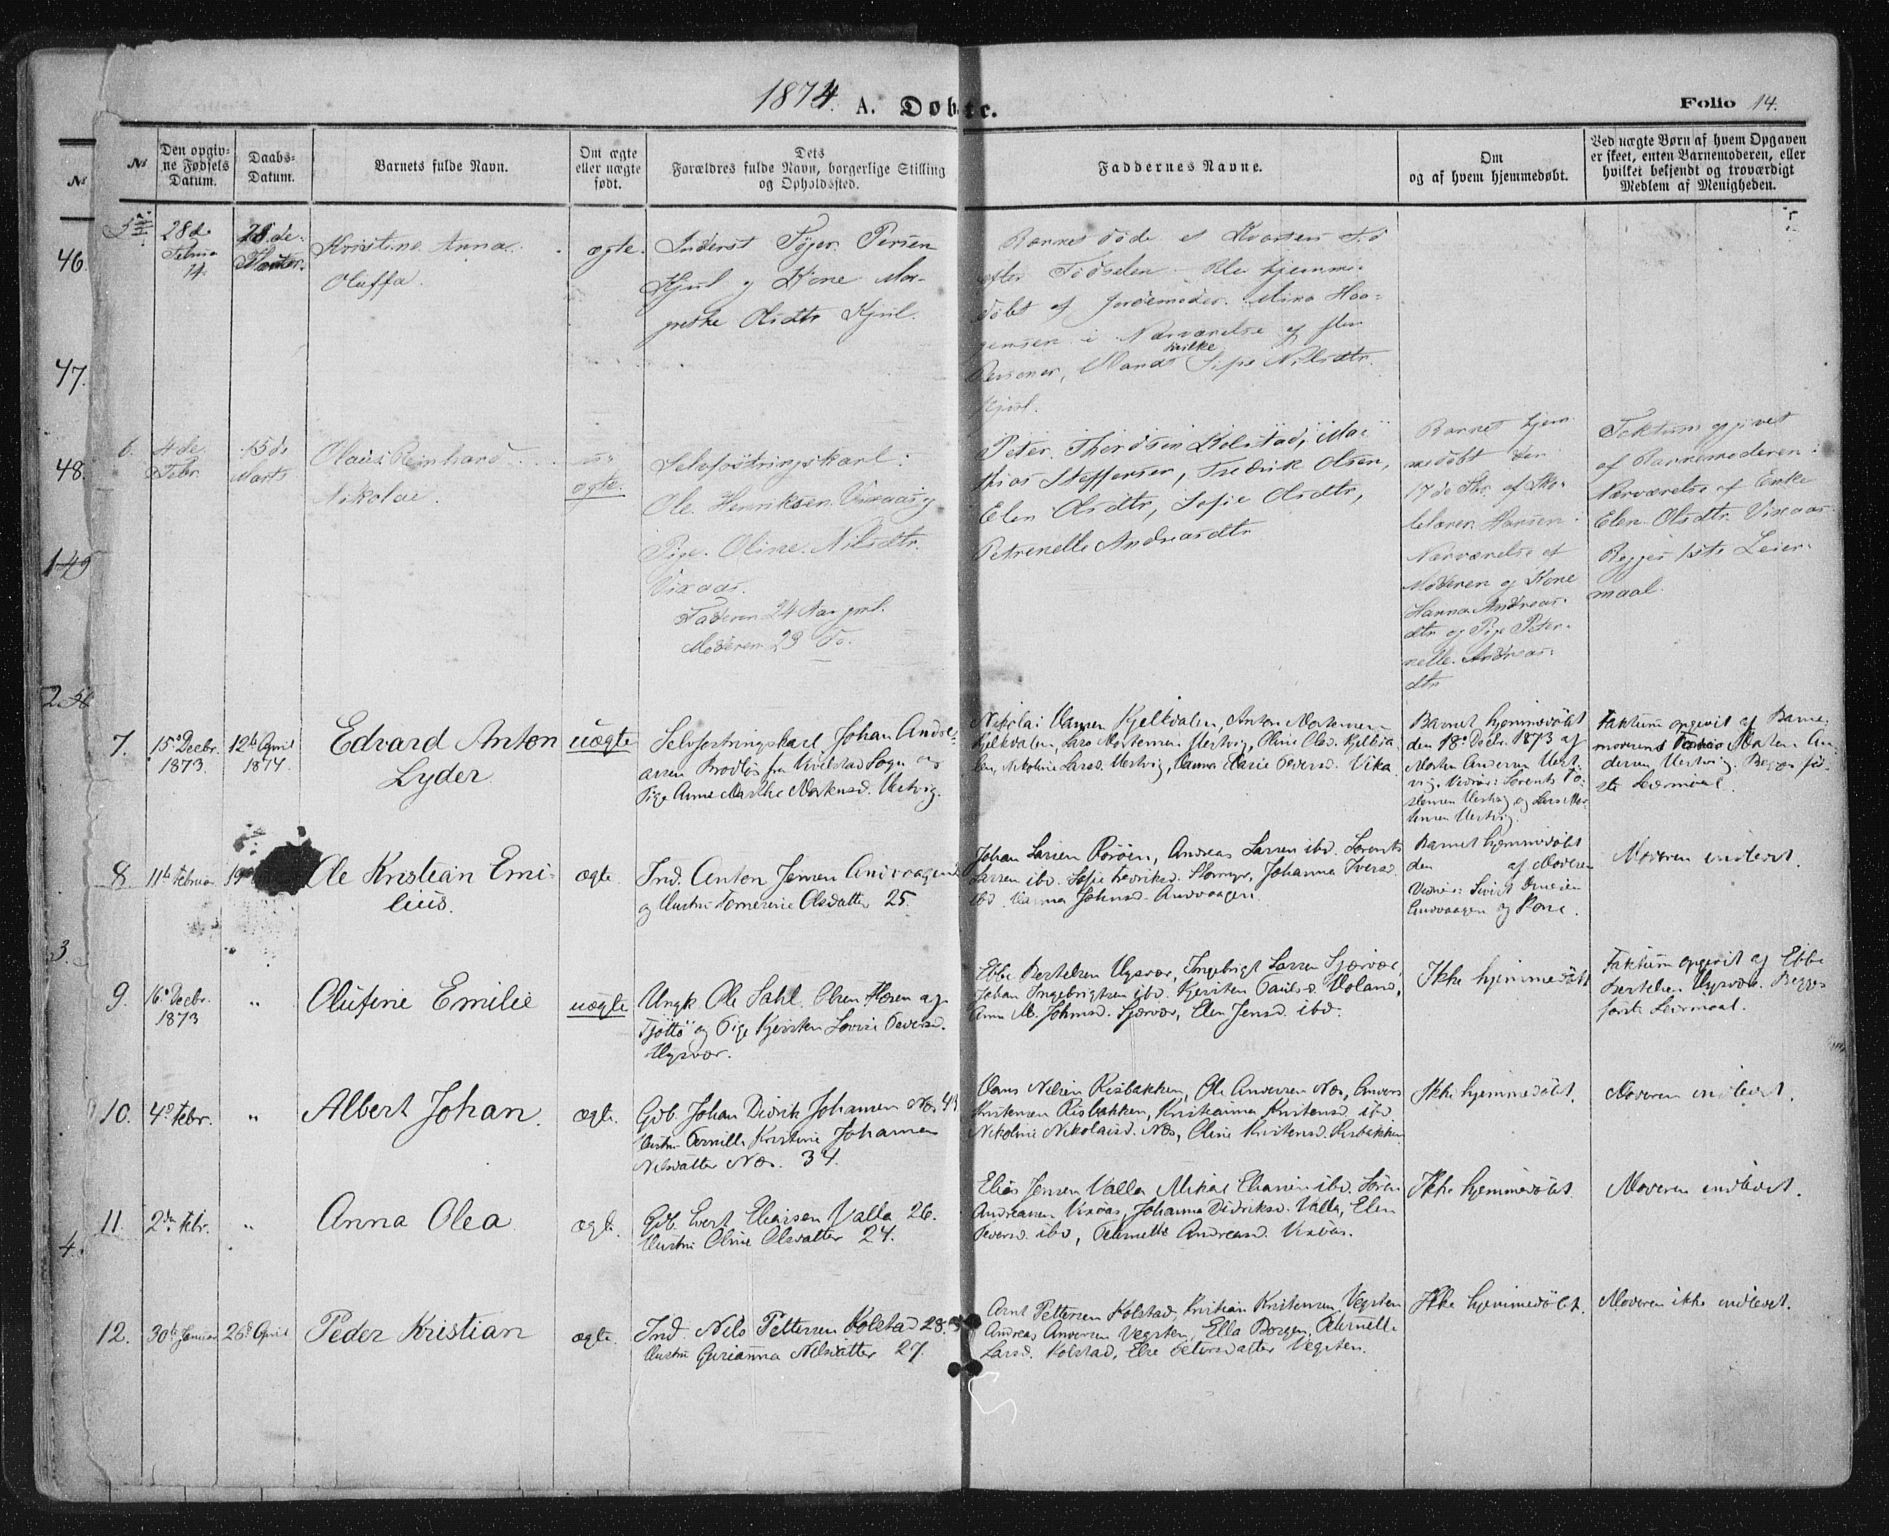 1874. A. Døbte.
Folio 14.
№
Den opgiv-
ne Fødsels
Datum.
Daabs-
Datum.
Barnets fulde Navn.
Om ægte
eller uægte
født.
Dets
Forældres fulde Navn, borgerlige Stilling
og Opholdssted.
Faddernes Navne.
Om
og af hvem hjemmedøbt.
Ved uægte Børn af hvem Opgaven
er skeet, enten Barnemoderen, eller
hvilket bekjendt og troværdigt
Medlem af Menigheden.
№
46.
47.
48.
3.
4.
28de
28de
Kristine Anna
Oluffa.
ægte.
Inderst Persen
Kjul og Kone Mar-
grethe Olsdtr Kjul.
Barnet døde et Kvarters Tid
efter Fødselen. Blev hjemme-
døbt af Jordemoder Mina Haa-
gensen i Nærværelse af flere
hvilke
Personer, blandt Sifs Nilsdtr.
Kjul.
6.
4de
Febr.
15de
Marts
Olaus Reinhard
Nikolai.
u-
ægte.
Selvfostringskarl
Ole Henriksen Vixaas og
Pige Oline Nilsdtr.
Vixaas.
Faderen 24 Aar gml.
Moderen 23 Do.
Peter Thordsen Kolstad, Ma-
thias Steffensen, Fredrik Olsen,
Elen Olsdtr, Sofie Olsdtr,
Petrenelle Andreasdtr
Barnet hjem
medøbt den
17de Fbr. af Sko-
lelærer Hansen i
Nærværelse af
Moderen og Kone
Hanna Andreas-
dtr og Pige Peter-
nelle Andreas-
dtr
Faktum opgivet
af Barnemoderen i
Nærværelse af Enke
Elen Olsdtr Vixaas.
Begges 1ste Leier-
maal.
7.
15de Decbr.
1873.
12te April
1874
Edvard Anton
Lyder
uægte
Selvfostringskarl Johan Andre-
assen Brodløs fra Sogn og
Pige Anne Marthe Mortensd. Hestvig.
Nikolai Hansen Kjelkvalen, Anton Mortensen
Kjelkvalen, Lars Mortensen Hestvig, Oline Olsd. Kjelkva-
len, Nikoline Larsd. Hestvig, Hanna Marie Peversd. Vika.
Barnet hjemmedøbt
den 18de Decbr. 1873 af
Morten Andersen Hest-
vig. Vidner: Lorents To-
stensen Hestvig og Lars Mor-
tensen Hestvig.
Faktum opgivet af Barne-
moderens Fader Morten An-
dersen Hestvig. Begges før-
ste Leiermaal.
8.
11te Februar
Ole Kristian Emi-
lius.
ægte
Ind. Anton Jensen Andvaagen
og Hustru Tomerine Olsdatter 25.
Johan Larsen Rosøen, Andreas Larsen ibd. Lorents
Larsen ibd. Sofie Fredriksd. Johanna Iversd.
ibd. Hanna Johnsd. Andvaagen.
Barnet hjemmedøbt
den af Moderen
Vidner: Sivert
Andvaagen og Kone.
Moderen indledet.
9.
16de Decbr.
1873
"
Olufine Emilie
uægte
Ungk. Ole Sahl. Olsen Floren af
Tjøttø og Pige Kjersten Lovise Peversd.
Hysvær.
Ebbe Bertelsen Hysvær, Ingebrigt Larsen Sjærvær,
Johan Ingebrigtsen ibd. Kjersten Paulsd. Holand,
Anne M. Johnsd. Sjærvær, Elen Jensd. ibd.
Ikke hjemmedøbt
Faktum opgivet af Ebbe
Bertelsen Hysvær. Begges
første Leiermaal.
10.
4de Febr.
"
Albert Johan.
ægte.
Gdb. Johan Didrik Johansen Næs 43
Hustru Pernille Kristine Johanne
Nilsdatter Næs. 34.
Hans Nilsen Risbakken, Ole Andersen Næs, Anders
Kristensen Risbakken, Kristianna Kristensd. ibd
Nikoline Nikolaisd. Næs, Oline Kristensd. Risbakken
Ikke hjemmedøbt.
Moderen indledet.
11.
2den Febr.
"
Anna Olea.
ægte.
Gdb. Evert Eliassen Valla 26.
Hustru Oline Olsdatter 24.
Elias Jensen Valla Mikal Eliassen ibd. Søren
Andreassen Vixaas, Johanna Didriksd. Valla, Elen
Peversd. ibd, Petrnelle Andreasd. Vixaas.
Ikke hjemmedøbt
Moderen indledet.
12.
30te Januar
26de April
Peder Kristian
ægte.
Ind. Nils Pettersen Kolstad 28.
Hustru Gurianna Nilsdatter 27.
Arnt Pettersen Kolstad, Kristian Kristensen Vegsten
Andreas Andersen Vegsten, Ella Borgen, Peternelle
Larsd. Kolstad, Else Petersdatter Vegsten.
Ikke hjemmedøbt.
Moderen ikke indledet.